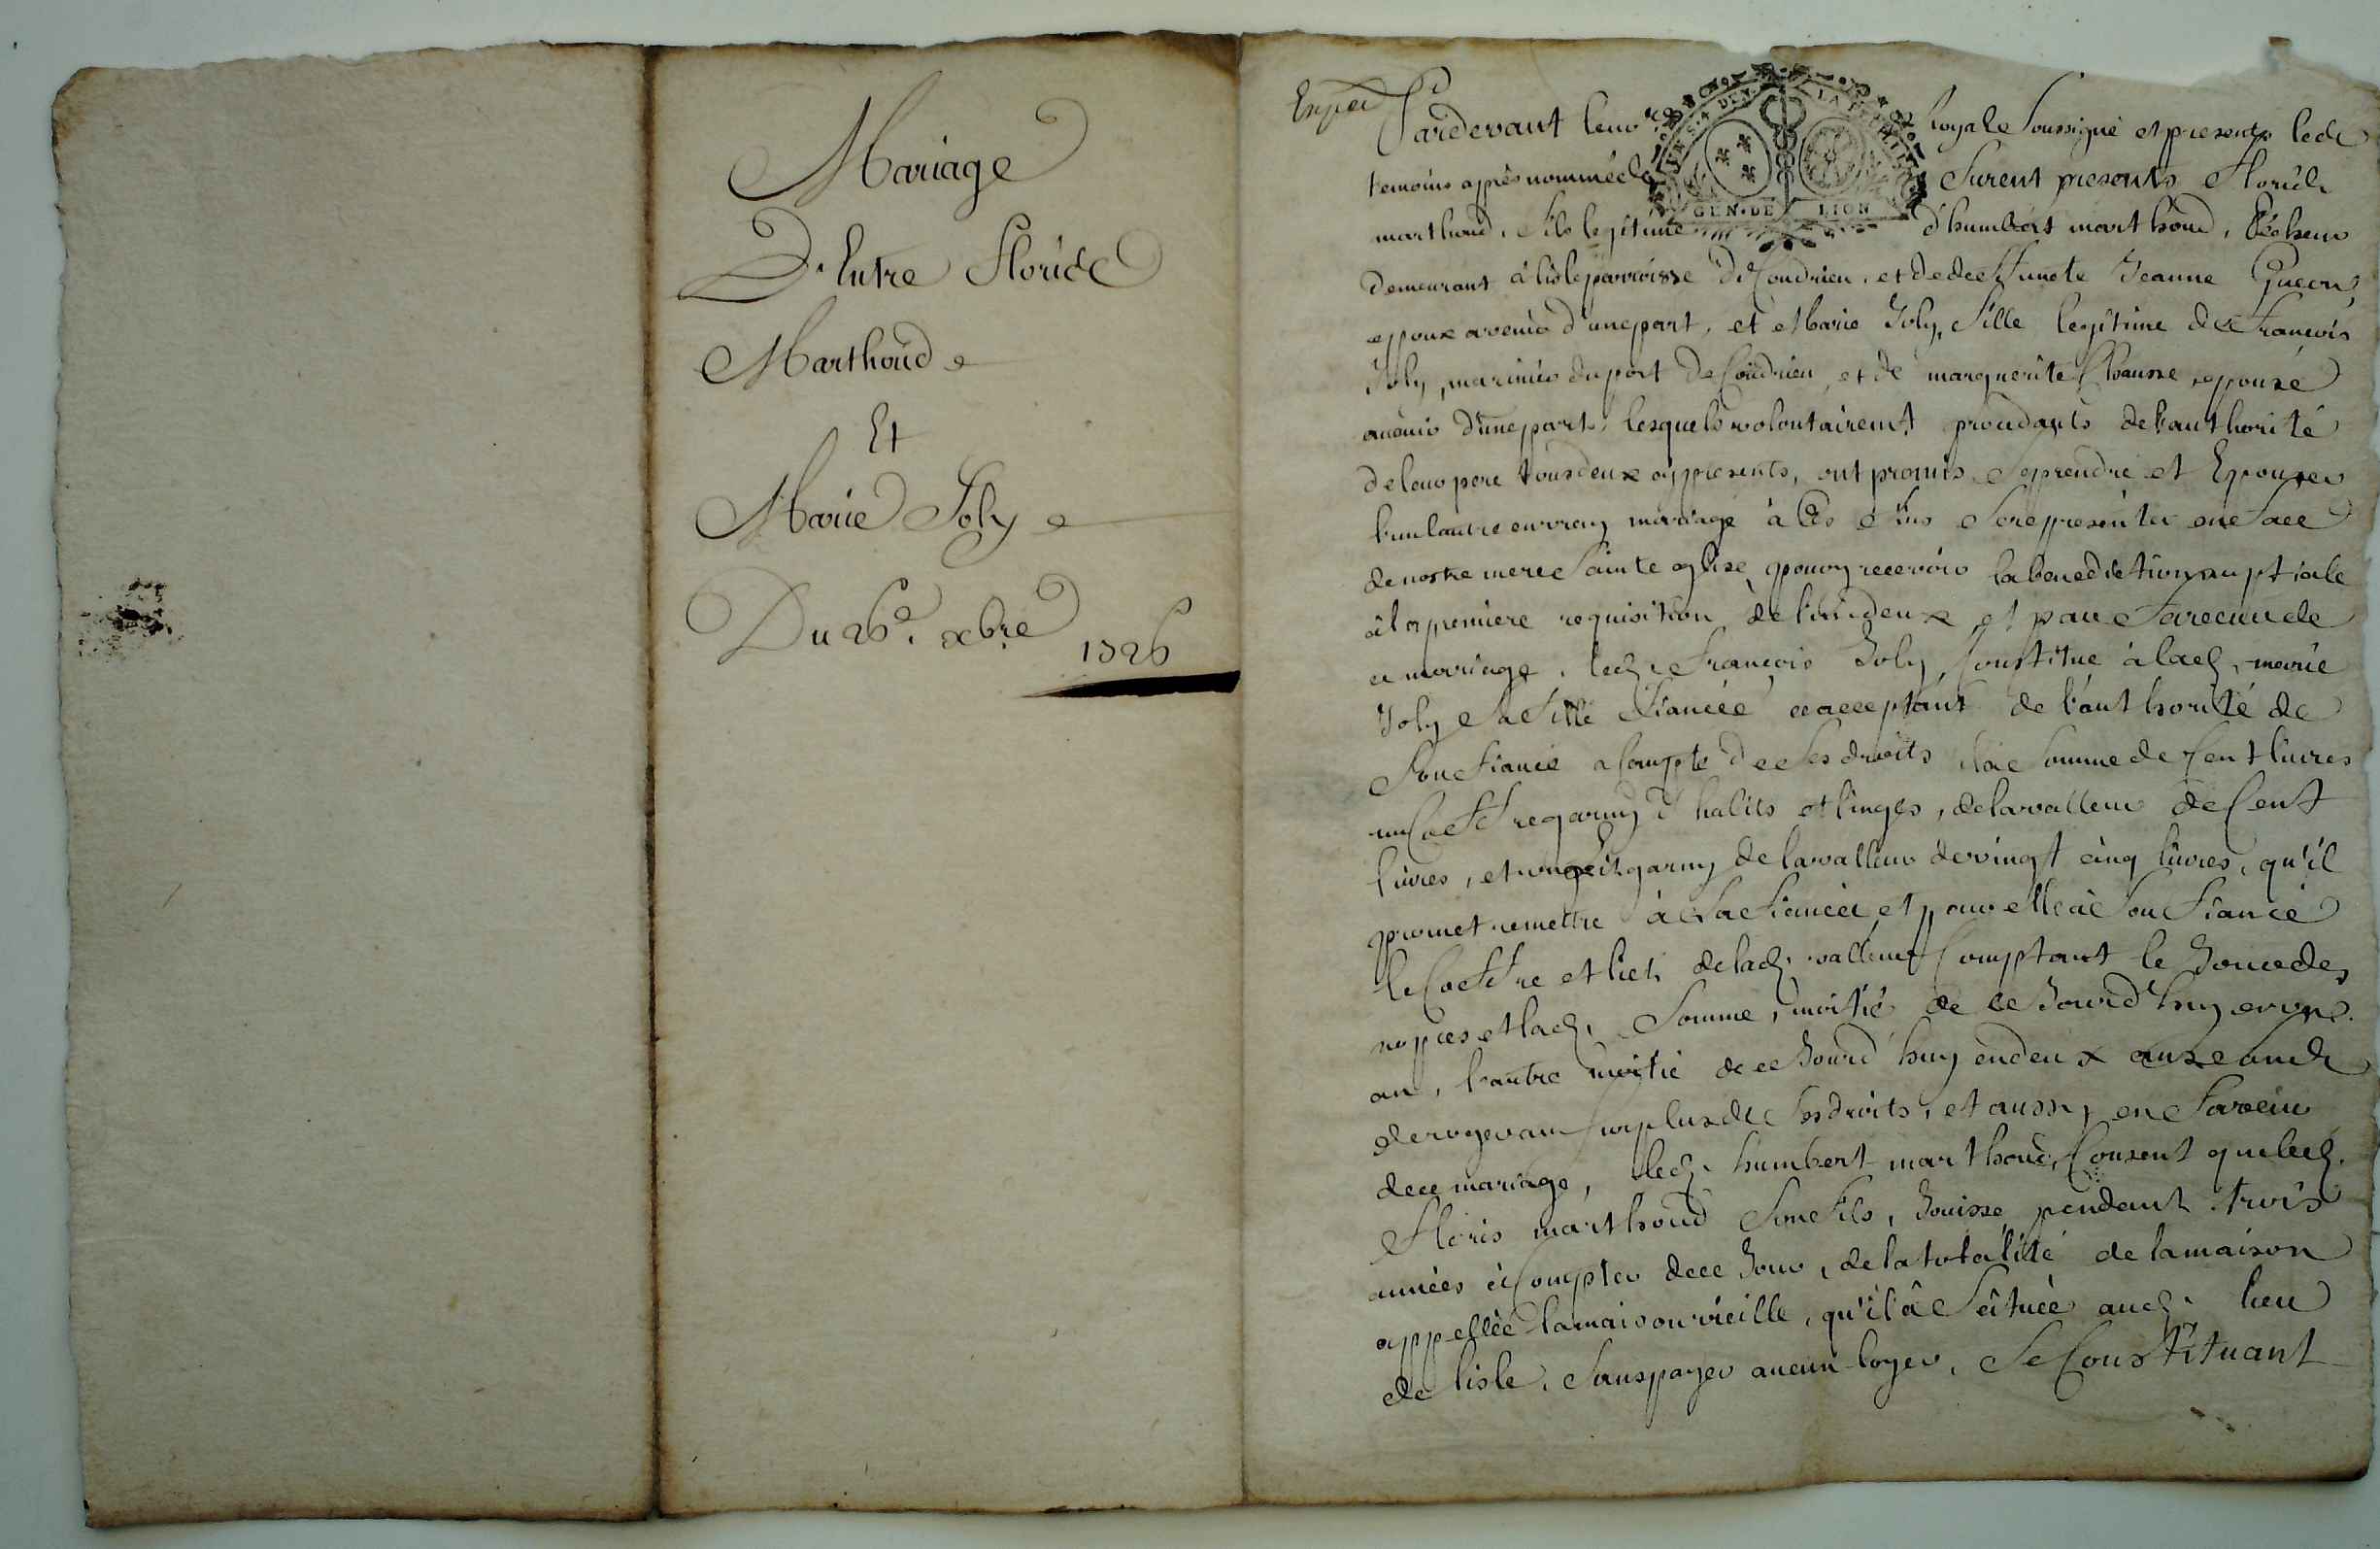 Mariage
D'Entre Floride
Marthoud
Et
Marie Joly
Du 26e. xbre
1726
Pardevant le nore Royale Soussigné et presents led
temoins après nommée furent presents Florid
marthoud, fils legitime d'humbert marthoud, Pécheur
demeurant à lisle parroisse de Condrieu, et de deffuncte Jeanne
eppoux avenir d'une part, et Marie Joly, fille legitime de Francois
Joly, marinier du port de Condrieu, et de marguerite Chausse, eppouse
avenir d'une part, lesquels volontairemt procedants de l'authorité
de leur pere tous deux cy presents, ont promis se prendre et Epouser
l'un l'autre en vray mariage à Ces fins se representer en face
de nostre mere sainte eglise pour y recevoir la benediction nuptiale
à la premiere requisition de l'un deux et par faveur de
ce mariage, led. Francois Joly, Constitue à lad. marie
Joly sa fille fiancée acceptant de l'authorité de
son fiancé a Compte de ses droits, la somme de Cent livres
un Coffre garny d'habits et linges, de la valleur de Cent
livres, et un garny de la valleur de vingt cinq livres, qu'il
promet remettre à sa fiancée, et pour elle à son fiancé
le Coffre et lict de lad. valleur Comptant le Jour des
noppces et lad. somme, moitié de ce Jourd'huy en un
an, l'autre moitié de ce Jourd'huy en deux ans
deroger au surplus de ses droits, et aussy en faveur
de ce mariage, led. humbert marthoud, Consent que led.
Floris marthoud son fils, Jouisse pendant trois
années à Compter de ce Jour, de la totalité de la maison
appellée la maison vieille, qu'il à scituée aud. lieu
de lisle, sans payer aucun loyer, se Constituant
GEN. DE LION